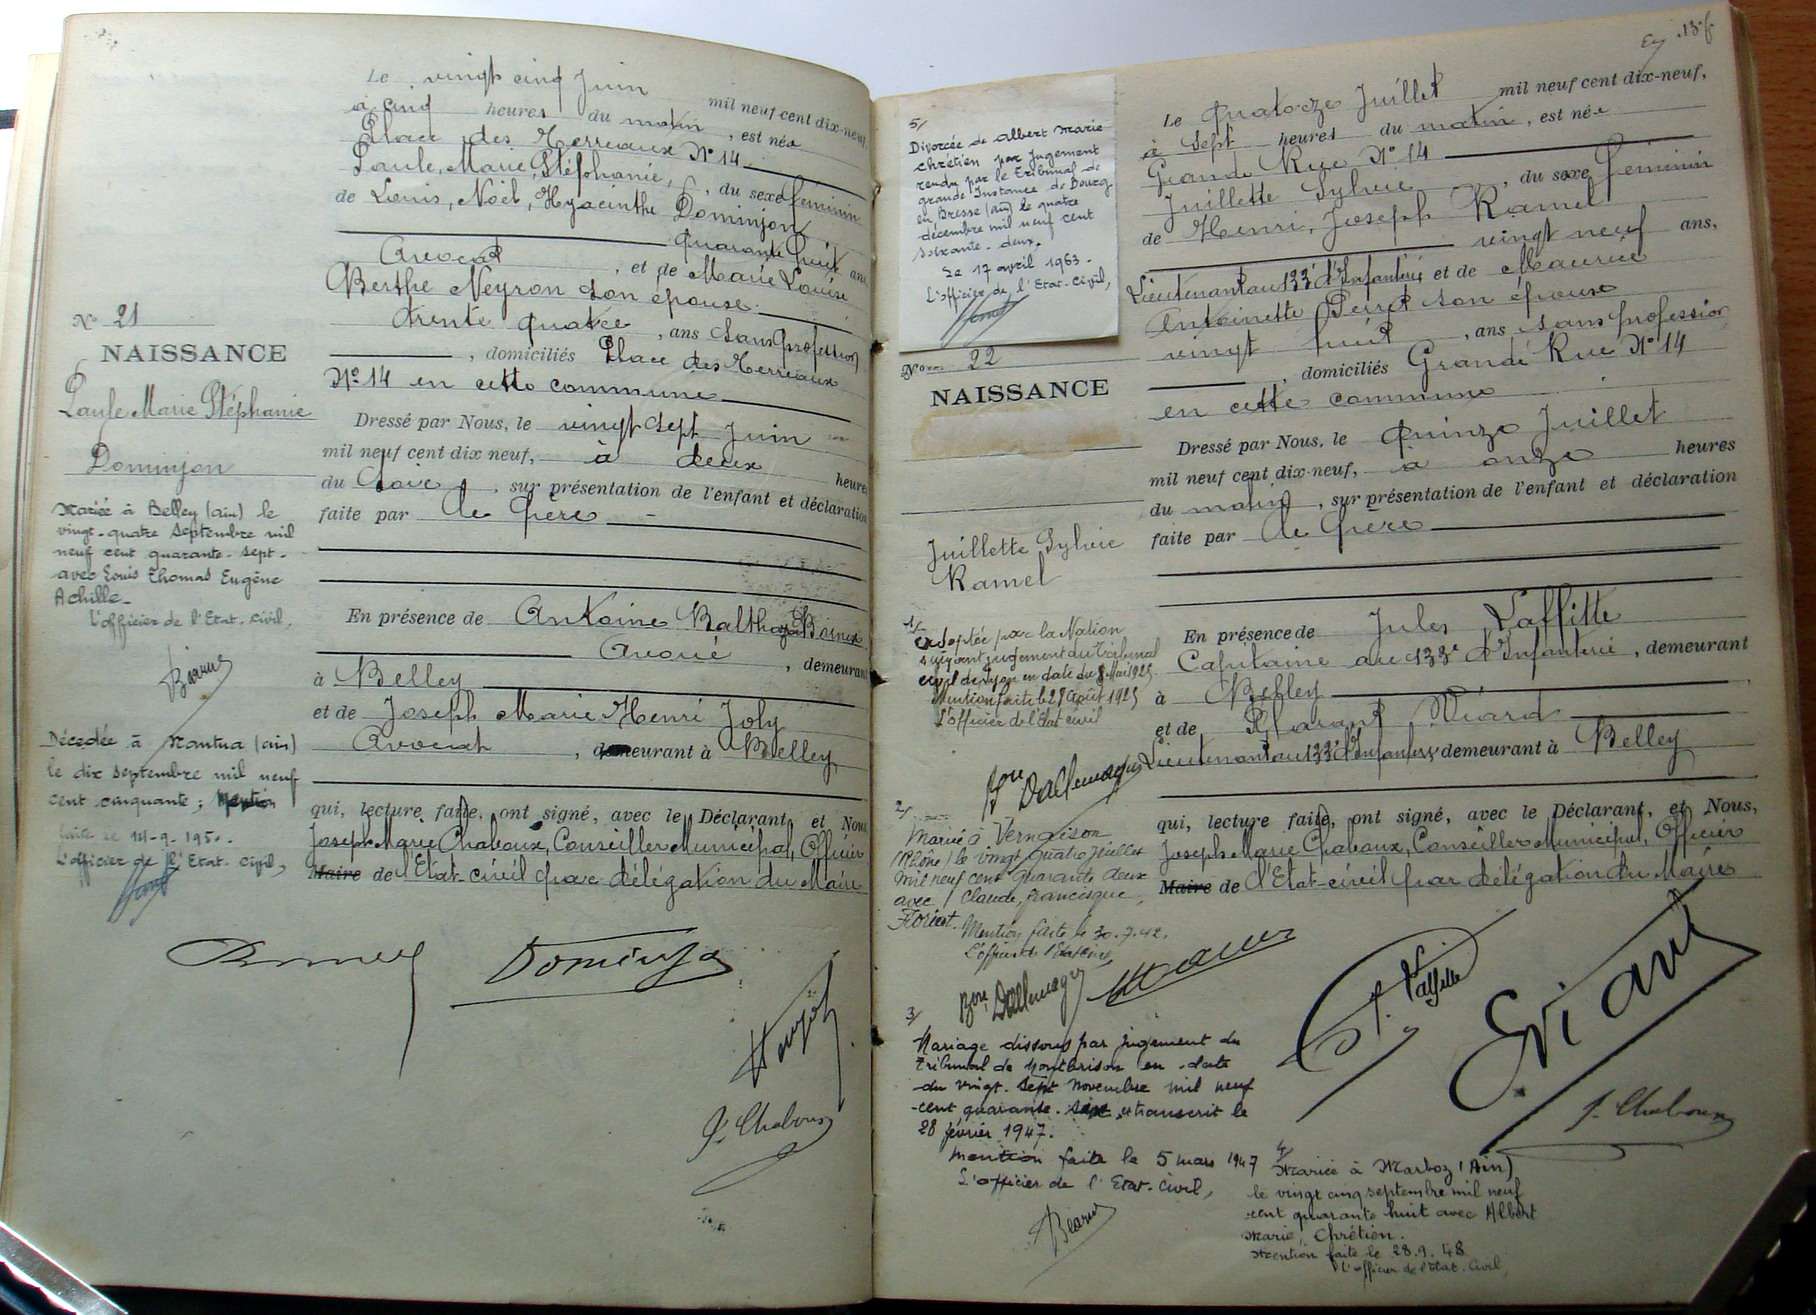 Le vingt cinq Juin mil neuf cent dix-neuf,
à cinq heures du matin, est née
Place des Terreaux N° 14
Paule, Marie, Stéphanie, du sexe féminin
de Louis, Noël, Hyacinthe Dominjon
quarante huit ans
Avocat, et de Marie Louise
Berthe Neyron son épouse
trente quatre, ans sans profession
, domiciliés Place des Terreaux
N° 14 en cette commune
Dressé par Nous, le vingt sept Juin
mil neuf cent dix neuf, à deux heures
du Soir, sur présentation de l'enfant et déclaration
faite par le Père
En présence de Antoine Balthazar
Avoué, demeurant
à Belley
et de Joseph Marie Henri Joly
Avocat, demeurant à Belley
qui, lecture faite, ont signé, avec le Déclarant, et Nous,
Joseph Marie Chaboux, Conseiller Municipal, Officier
Maire de l'Etat-civil par délégation du Maire
N° 21
NAISSANCE
Paule Marie Stéphanie
Dominjon
Mariée à Belley (ain) le
vingt-quatre septembre mil
neuf cent quarante-sept-
avec Louis Thomas Eugène
Achille-
L'officier de l'Etat-civil,
Décédée à Nantua (ain)
le dix septembre mil neuf
cent cinquante; Mention
faite le 14-9-1950.
L'officier de l'Etat-civil,
Dominjon
J. Chaboux
13
5/
Divorcée de Albert Marie
Chrétien par Jugement
rendu par le Tribunal de
grande Instance de Bourg
en Bresse (ain) le quatre
décembre mil neuf cent
soixante-deux.
Le 17 avril 1963-
L'officier de l'Etat-Civil,
N° 22
NAISSANCE
Juillette Sylvie
Ramel
1/
adoptée par la Nation
suivant jugement du Tribunal
civil de Lyon en date du 8 Mai 1925
Mention faite le 29 Août 1925
L'officier de l'état civil
Bon Dallemagne
2/
Mariée à Vernaison
(Rhône) le vingt quatre Juillet
mil neuf cent quarante deux
avec Claude, francisque,
Floriat. Mention faite le 30.7.42.
L'officier de l'Etat civil,
Bon Dallemagne
3/
Mariage dissous par jugement du
Tribunal de Montbrison en date
du vingt-sept novembre mil neuf
cent quarante-six et transcrit le
28 février 1947.
Mention faite le 5 mars 1947
L'officier de l'Etat-civil,
Le Quatorze Juillet mil neuf cent dix-neuf,
à Sept heures du matin, est née
Grande Rue N° 14
Juillette Sylvie, du sexe féminin
de Henri, Joseph Ramel
vingt neuf ans,
Lieutenant au 133e d'Infanterie et de Maurice
Antoinette Perret son épouse
vingt huit, ans, sans profession
, domiciliés Grande Rue N° 14
en cette commune
Dressé par Nous, le Quinze Juillet
mil neuf cent dix-neuf, à onze heures
du matin, sur présentation de l'enfant et déclaration
faite par le Père
En présence de Jules Laffitte
Capitaine au 133e d'Infanterie, demeurant
à Belley
et de Viard
Lieutenant au 133e d'Infanterie demeurant à Belley
qui, lecture faite, ont signé, avec le Déclarant, et Nous,
Joseph Marie Chaboux, Conseiller Municipal, Officier
Maire de l'Etat-civil par délégation du Maire
J. Laffitte
E. Viard
J. Chaboux
4/
Mariée à Marboz (Ain)
le vingt cinq septembre mil neuf
cent quarante huit avec Albert
Marie, Chrétien.
Mention faite le 28.9.48
L'officier de l'Etat-Civil,